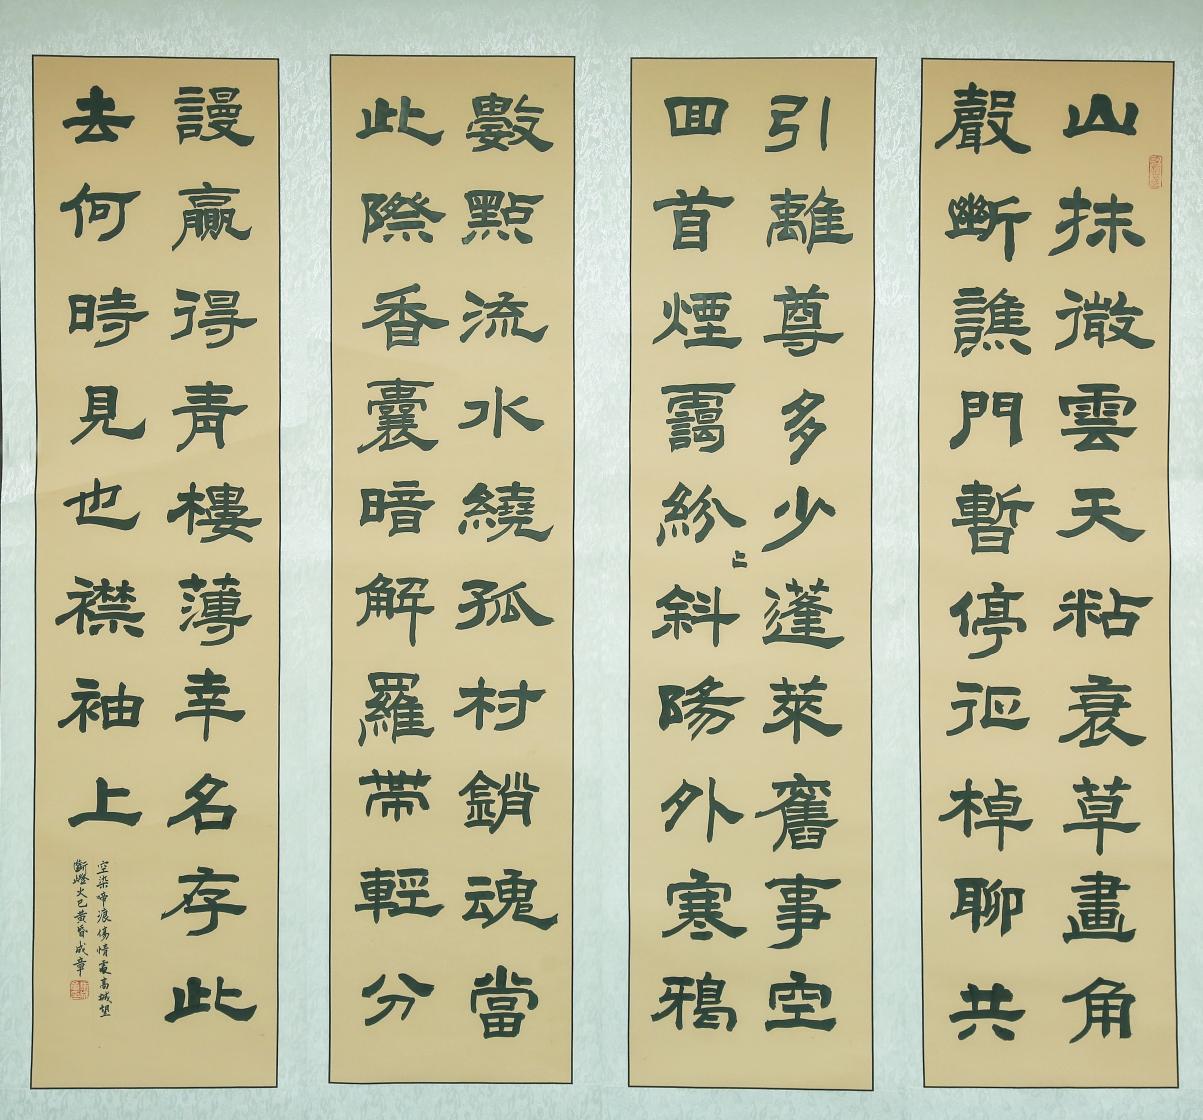 山抹微雲天粘衰草畫角
聲斷譙門暫停征棹聊共
引離尊多少蓬萊舊事空
回首煙靄紛〻斜陽外寒鴉
數點流水繞孤村銷魂當
此際香囊暗解羅帶輕分
謾贏得青樓薄幸名存此
去何時見也襟袖上
空染啼痕傷情處高城望
斷燈火已黃昏成章